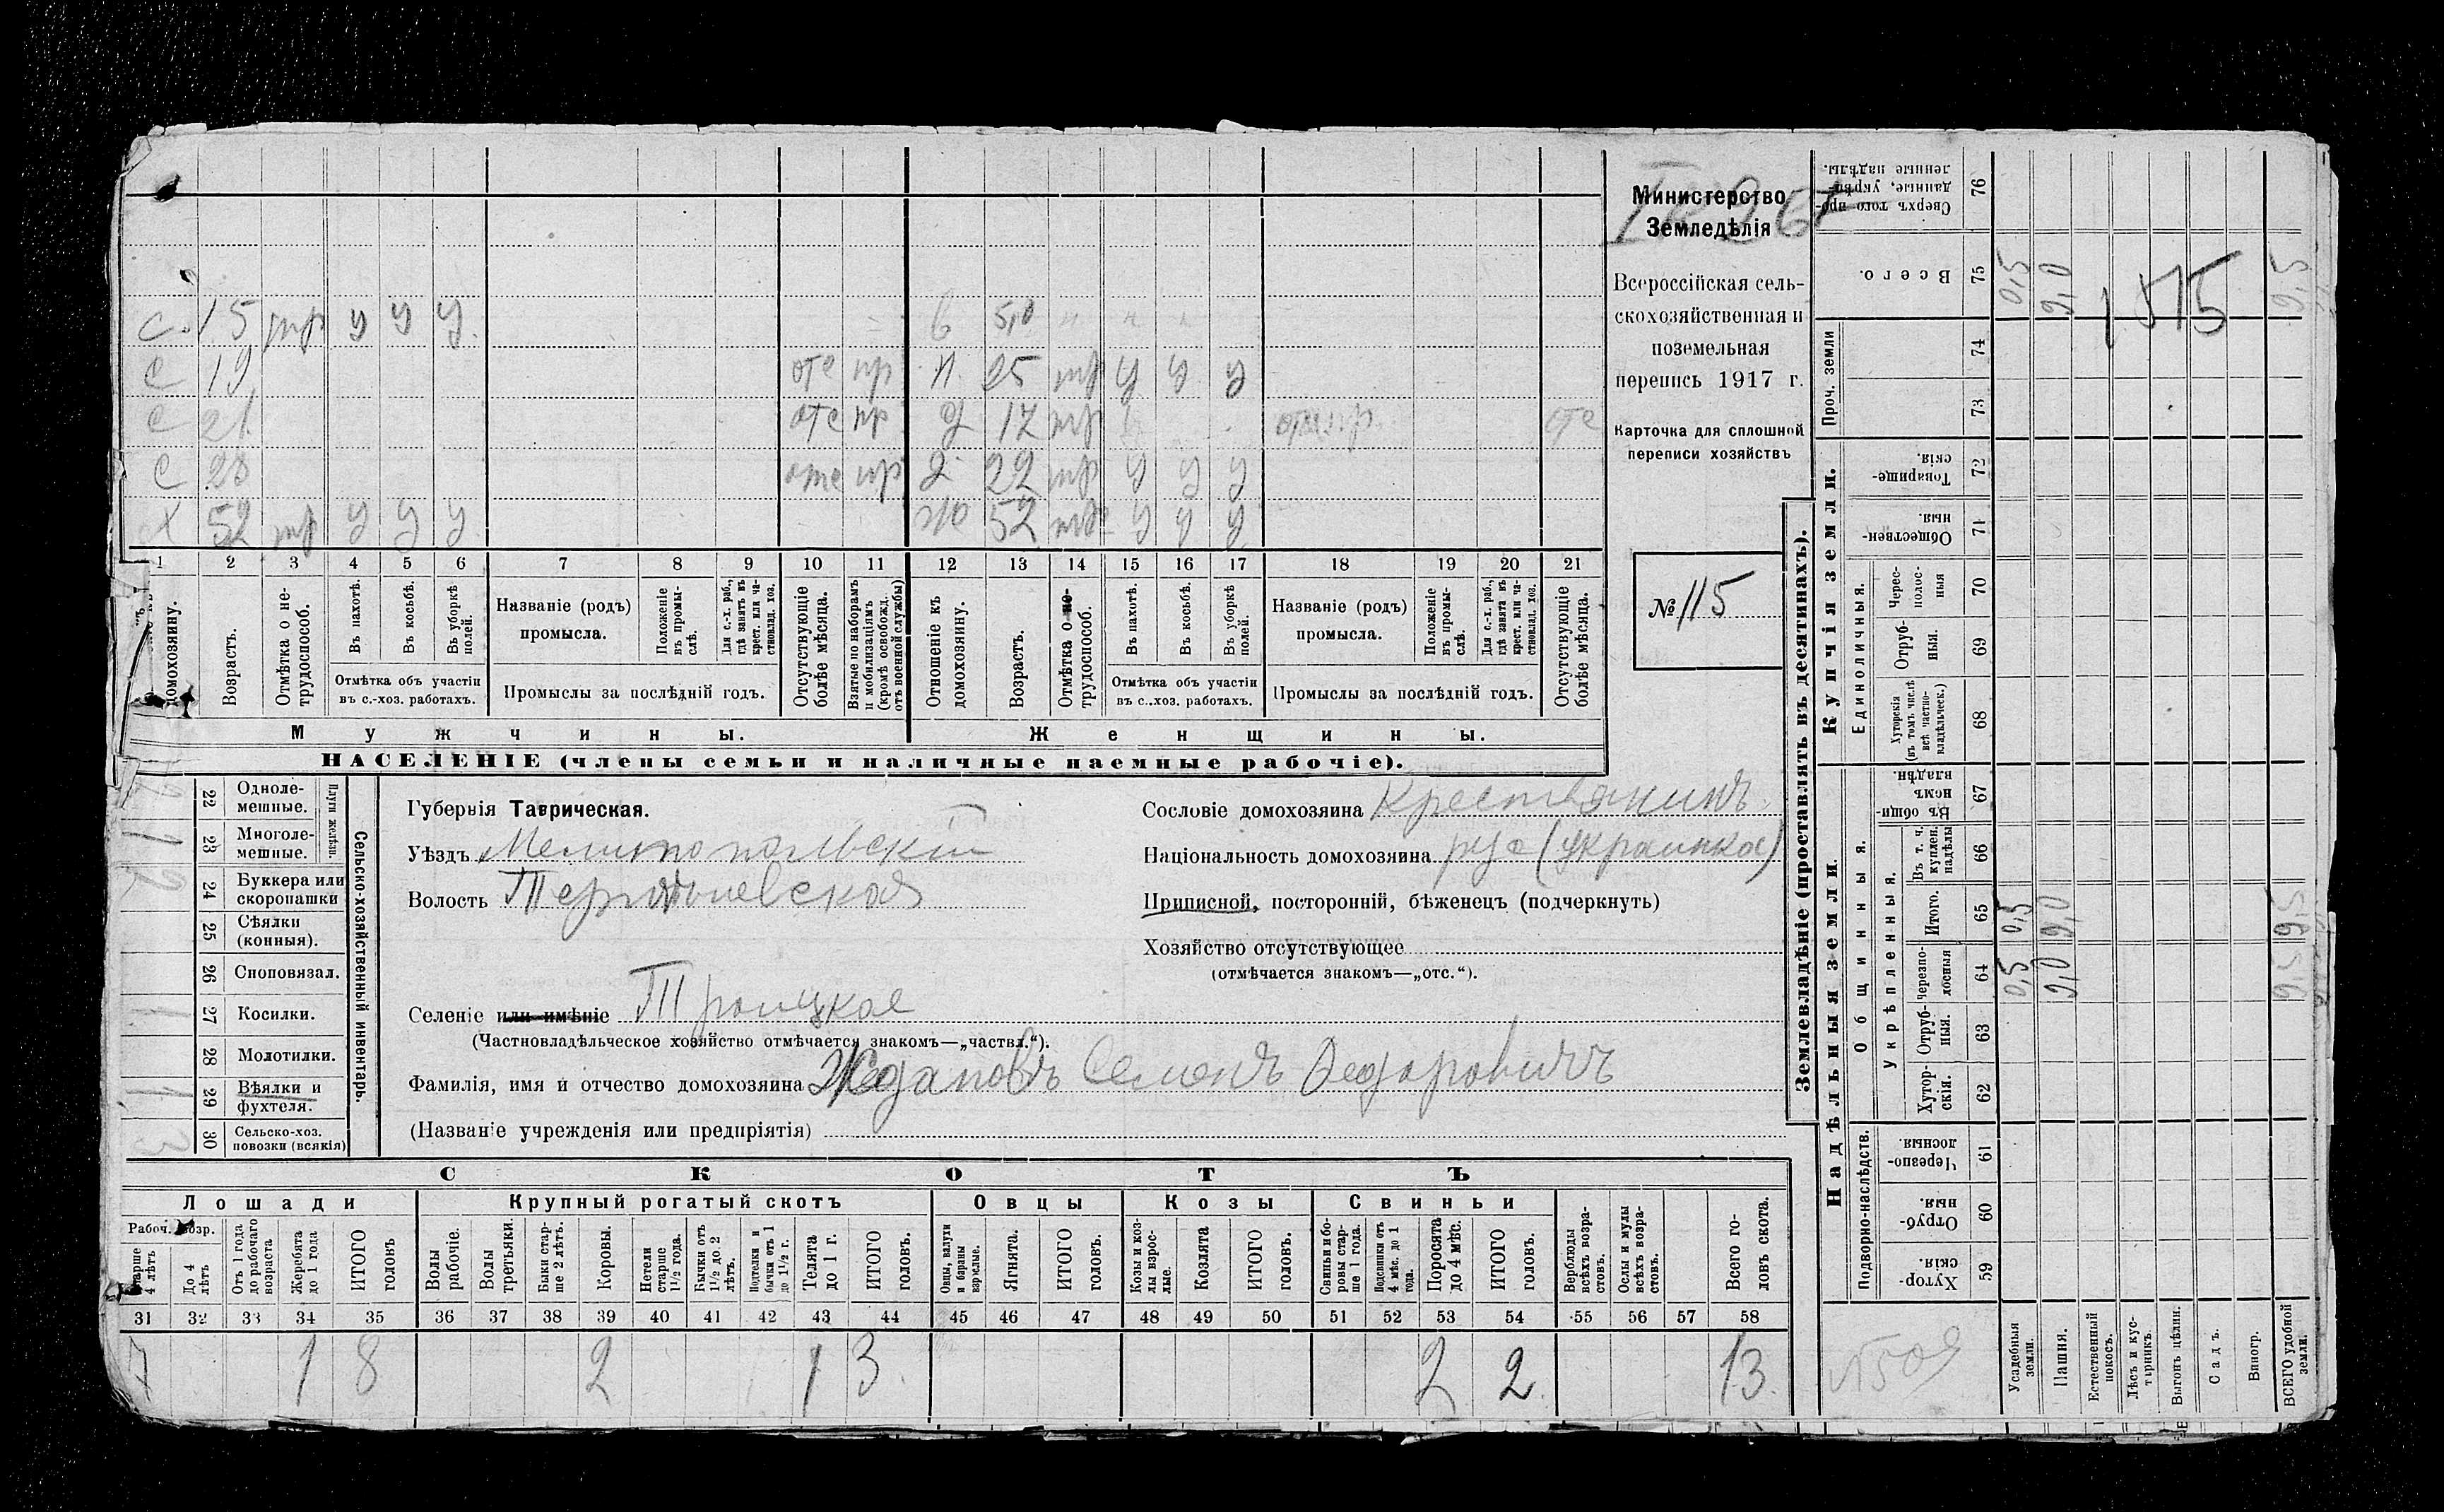 Министерство
Земледѣлія
Всероссійская сель-
скохозяйственная и
поземельная
перепись 1917 г.
Карточка для сплошной
переписи хозяйствъ
№ 115
с. 15 тр у у у в 5,0
с 19 отс пр н. 25 тр у у у
с 21 отс пр д 17 тр отс
с 28 отс пр д 22 тр у у у
х 52 тр у у у жо 52 тр у у у
1 2 3 4 5 6 7 8 9 10 11 12 13 14 15 16 17 18 19 20 21
домохозяину.
Возрастъ.
Отмѣтка о не-
трудоспособ.
Въ пахотѣ.
Въ косьбѣ.
Въ уборкѣ
полей.
Отмѣтка объ участіи
въ с.-хоз. работахъ.
Названіе (родъ)
промысла.
Положеніе
въ промы-
слѣ.
Для с.-х. раб.,
гдѣ занятъ въ
крест. или ча-
стновлад. хоз.
Промыслы за послѣдній годъ.
Отсутствующіе
болѣе мѣсяца.
Взятые по наборамъ
и мобилизаціямъ
(кромѣ освобожд.
отъ военной службы)
Отношеніе къ
домохозяину.
Возрастъ.
Отмѣтка о не-
трудоспособ.
Въ пахотѣ.
Въ косьбѣ.
Въ уборкѣ
полей.
Отмѣтка объ участіи
въ с.-хоз. работахъ.
Названіе (родъ)
промысла.
Положеніе
въ промы-
слѣ.
Для с.-х. раб.,
гдѣ занята въ
крест. или ча-
стновлад. хоз.
Промыслы за послѣдній годъ.
Отсутствующіе
болѣе мѣсяца.
Мужчины. Женщины.
НАСЕЛЕНІЕ (члены семьи и наличные наемные рабочіе).
22 Одноле-
мешные.
23 Многоле-
мешные.
Плуги желѣзн.
24 Буккера или
скоропашки
25 Сѣялки
(конныя).
26 Сноповязал.
27 Косилки. 1
28 Молотилки.
29 Вѣялки и
фухтеля. 1
30 Сельско-хоз.
повозки (всякія) 3
Сельско-хозяйственный инвентарь.
Губернія Таврическая.
Уѣздъ Мелитопольскій
Волость
Селеніе или имѣніе Троицкое
(Частновладѣльческое хозяйство отмѣчается знакомъ—„частвл.“).
Фамилія, имя и отчество домохозяина Ждановъ Семенъ Федоровичъ
(Названіе учрежденія или предпріятія)
Сословіе домохозяина Крестьянинъ
Національность домохозяина рус (украинка)
Приписной, посторонній, бѣженецъ (подчеркнуть)
Хозяйство отсутствующее
(отмѣчается знакомъ—„отс.“).
СКОТЪ
Лошади Крупный рогатый скотъ Овцы Козы Свиньи
Рабоч. возр.
Старше
4 лѣтъ
До 4
лѣтъ
Отъ 1 года
до рабочаго
возраста
Жеребята
до 1 года
ИТОГО
головъ
Волы
рабочіе.
Волы
третьяки.
Быки стар-
ше 2 лѣтъ.
Коровы.
Нетели
старше
1½ года.
Бычки отъ
1½ до 2
лѣтъ.
Подтелки и
бычки отъ 1
до 1½ г.
Телята
до 1 г.
ИТОГО
головъ.
Овцы, валухи
и бараны
взрослые.
Ягнята.
ИТОГО
головъ.
Козы и коз-
лы взрос-
лые.
Козлята
ИТОГО
головъ.
Свиньи и бо-
ровы стар-
ше 1 года.
Подсвинки отъ
4 мѣс. до 1
года.
Поросята
до 4 мѣс.
ИТОГО
головъ.
Верблюды
всѣхъ возра-
стовъ.
Ослы и мулы
всѣхъ возра-
стовъ.
Всего го-
ловъ скота.
31 32 33 34 35 36 37 38 39 40 41 42 43 44 45 46 47 48 49 50 51 52 53 54 55 56 57 58
7 1 8 2 1 3 2 2 13
Землевладѣніе (проставлять въ десятинахъ).
Надѣльныя земли. Купчія земли. Проч. земли
Общинныя. Единоличныя.
Подворно-наслѣдств. Укрѣпленныя.
Сверхъ того про-
данные, укрѣп-
ленные надѣлы. 76
Всего. 75 0,5 9,0 9,5
1515
74
73
Товарище-
скія. 72
Обществен-
ныя 71
Черес-
полос-
ныя 70
Отруб-
ныя. 69
Хуторскія
(въ томъ числѣ
всѣ частно-
владѣльческ.) 68
Въ общи-
номъ
владѣн. 67
Въ т. ч.
куплен.
надѣлы 66
Итого. 65 0,5 9,0 9,5
черезпо-
лосныя 64 0,5 9,0 9,5
Отруб-
ныя. 63
Хутор-
скія. 62
Черезпо-
лосныя. 61
Отруб-
ныя. 60
Хутор-
скія. 59
Усадебныя
земли.
Пашня.
Естественный
покосъ.
Лѣсъ и кус-
тарникъ.
Выгонъ цѣлин.
Садъ.
Виногр.
ВСЕГО удобной
земли.